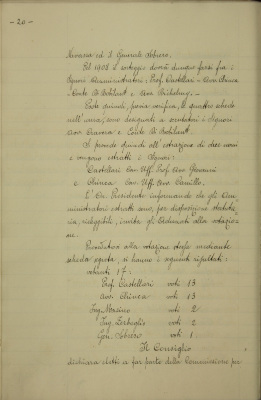 - 20 -
Novarese ed I Quinuli
Pel 1908 il sorteggio dovrà dunque farsi fra i
Signori Amministratori: Prof. Castellari - Avv. Chiuca
Conte Di Robilant e Avv.
Poste quindi, previa verifica, le quattro schede
nell'urna, sono designati a scrutatori i Signori
Avv. e Conte Di Robilant.
Si procede quindi all'estrazione di due nomi
e vengono estratti i Signori:
Castellari Cav. Uff. Prof. Avv. Giovanni
e Chiuca Cav. Uff. Avv. Camillo.
Il On. Presidente informando che gli Am-
ministratori estratti sono, per disposizione statuta-
ria, rieleggibili, invita gli Adunati alla votazio-
ne.
Procedutosi alla votazione stessa mediante
scheda segreta, si hanno i seguenti risultati:
votanti 17:
Prof. Castellari voti 13
Avv. Chiuca voti 13
Ing. voti 2
Ing. voti 2
Gen. voti 1
Il Consiglio
dichiara eletti a far parte della Commissione per